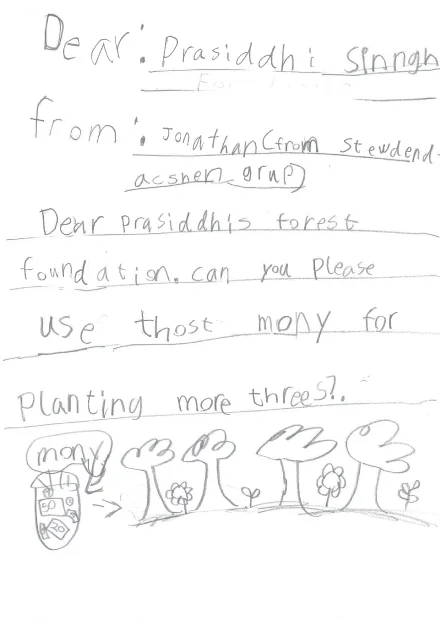 Dear: Prasiddhi Sinngh
from: Jonathan (from stewdend
acshen grup)
Dear prasiddhis forest
foundation. can you please
use thost mony for
planting more threes?.
mony
50
20